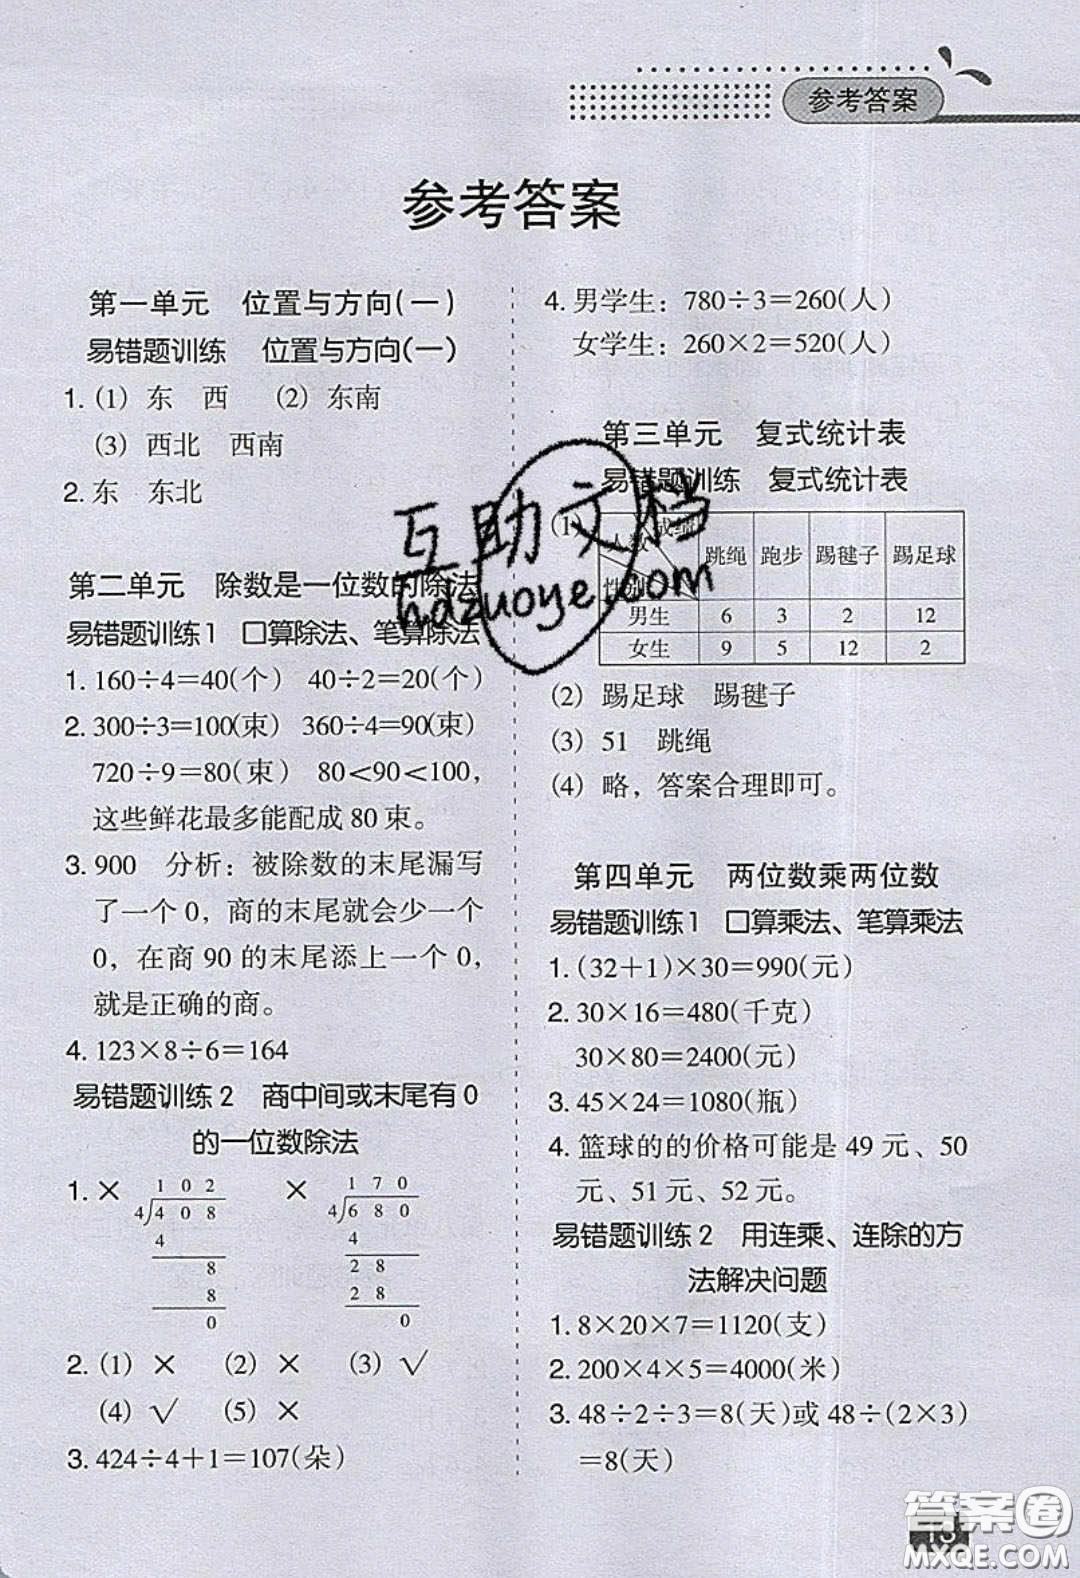 参考答案
参考答案
第一单元 位置与方向(一)
易错题训练 位置与方向(一)
1. (1) 东 西 (2) 东南
(3) 西北 西南
2. 东 东北
第二单元 除数是一位数的除法
易错题训练1 口算除法、笔算除法
1. 160÷4=40(个) 40÷2=20(个)
2. 300÷3=100(束) 360÷4=90(束)
720÷9=80(束) 80<90<100,
这些鲜花最多能配成 80 束。
3. 900 分析：被除数的末尾漏写
了一个 0，商的末尾就会少一个
0，在商 90 的末尾添上一个 0，
就是正确的商。
4. 123×8÷6=164
易错题训练 2 商中间或末尾有 0
的一位数除法
1. × 102 × 170
4√408 4√680
4 4
8 28
8 28
0 0
2. (1) × (2) × (3) √
(4) √ (5) ×
3. 424÷4+1=107(朵)
4. 男学生：780÷3=260(人)
女学生：260×2=520(人)
第三单元 复式统计表
易错题训练 复式统计表
(1)
人数 成绩 跳绳 跑步 踢毽子 踢足球
性别
男生 6 3 2 12
女生 9 5 12 2
(2) 踢足球 踢毽子
(3) 51 跳绳
(4) 略，答案合理即可。
第四单元 两位数乘两位数
易错题训练1 口算乘法、笔算乘法
1. (32+1)×30=990(元)
2. 30×16=480(千克)
30×80=2400(元)
3. 45×24=1080(瓶)
4. 篮球的的价格可能是 49 元、50
元、51 元、52 元。
易错题训练 2 用连乘、连除的方
法解决问题
1. 8×20×7=1120(支)
2. 200×4×5=4000(米)
3. 48÷2÷3=8(天)或 48÷(2×3)
=8(天)
互助文档
hdzuoye.com
答案圈
13
MXQE.COM